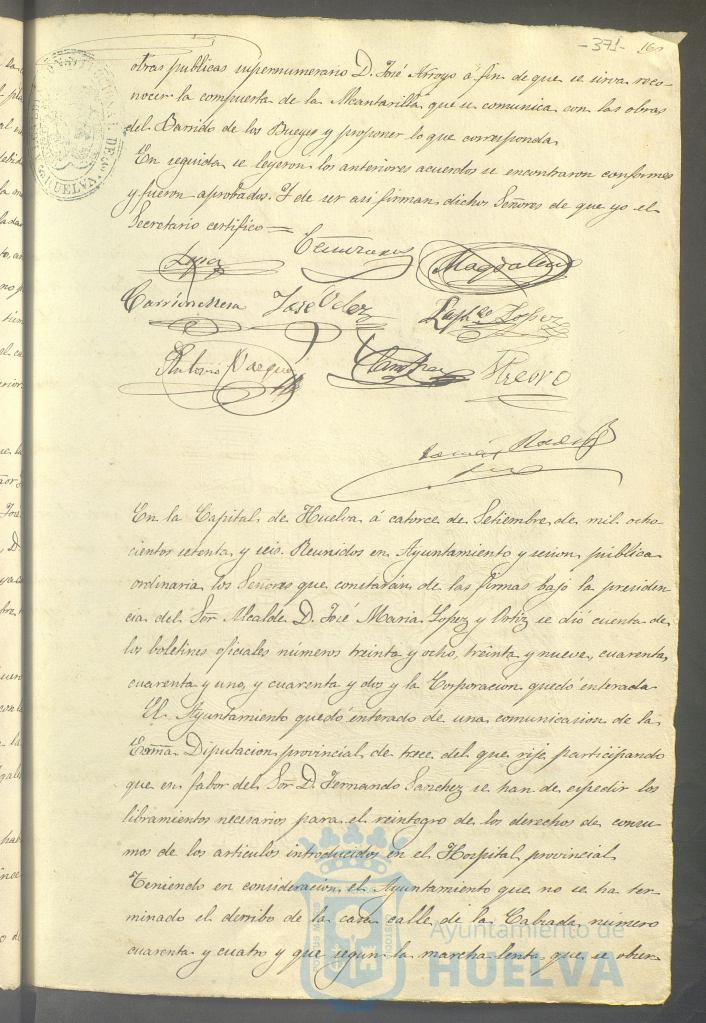 - 371 - 161
obras publicas supernumerario D. José Arroyo á fin de que se sirva reco-
nocer la compuerta de la Alcantarilla que se comunica con las obras
del Barrido de los Bueyes y proponer lo que corresponda
En seguida se leyeron los anteriores acuerdos se encontraron conformes
y fueron aprobados. Y de ser asi firman dichos Señores de que yo el
Secretario certifico =
Magdalena
Carrion Mesa José Velez Lopez
Antonio Vazquez
En la Capital de Huelva á catorce de Setiembre de mil ocho
cientos setenta y seis. Reunidos en Ayuntamiento y sesion publica
ordinaria los Señores que constarán de las firmas bajo la presiden
cia del Sor Alcalde D. José Maria Lopez y Ortiz se dió cuenta de
los boletines oficiales números treinta y ocho, treinta y nueve, cuarenta,
cuarenta y uno, y cuarenta y dos y la Corporacion quedó enterada
El Ayuntamiento quedó enterado de una comunicasion de la
Exma Diputacion provincial de trece del que rije, participando
que en fabor del Sor D. Fernando Sanchez se han de espedir los
libramientos necesarios para el reintegro de los derechos de consu
mos de los articulos introducidos en el Hospital provincial
Teniendo en consideracion el Ayuntamiento que no se ha ter
minado el derribo de la casa calle de la Calzada número
cuarenta y cuatro y que segun la marcha lenta que se obser
Ayuntamiento de
HUELVA